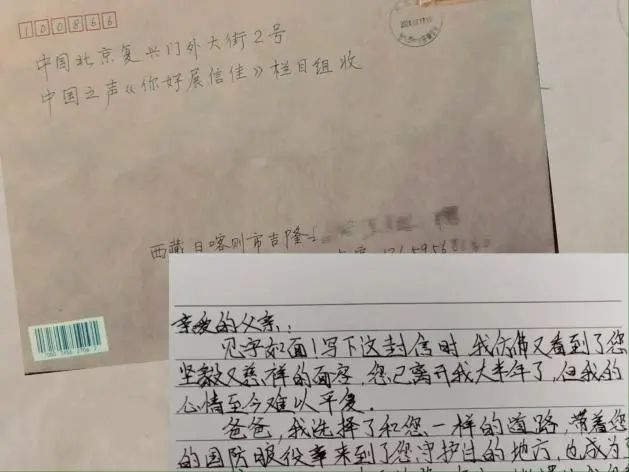 100866
中国北京复兴门外大街2号
中国之声《你好展信佳》栏目组 收
西藏日喀则市吉隆
亲爱的父亲:
见字如面!写下这封信时,我仿佛又看到了您
坚毅又慈祥的面容,您已离开我大半年了,但我的
心情至今难以平复.
爸爸,我选择了和您一样的道路,带着您
的国防服役章来到了您守护过的地方,也成为了